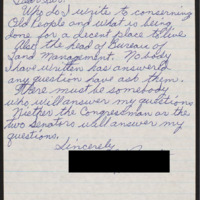 Dear Sir:
Who do I write to concerning
Old People and what is being
done for a decent place to live
the head of Bureau of
Land Management. Nobody
I have written has answered
any question have ask them.
There must be somebody
who will answer my questions
Niether the Congressman or the
two Senators will answer my
questions.
Sincerely